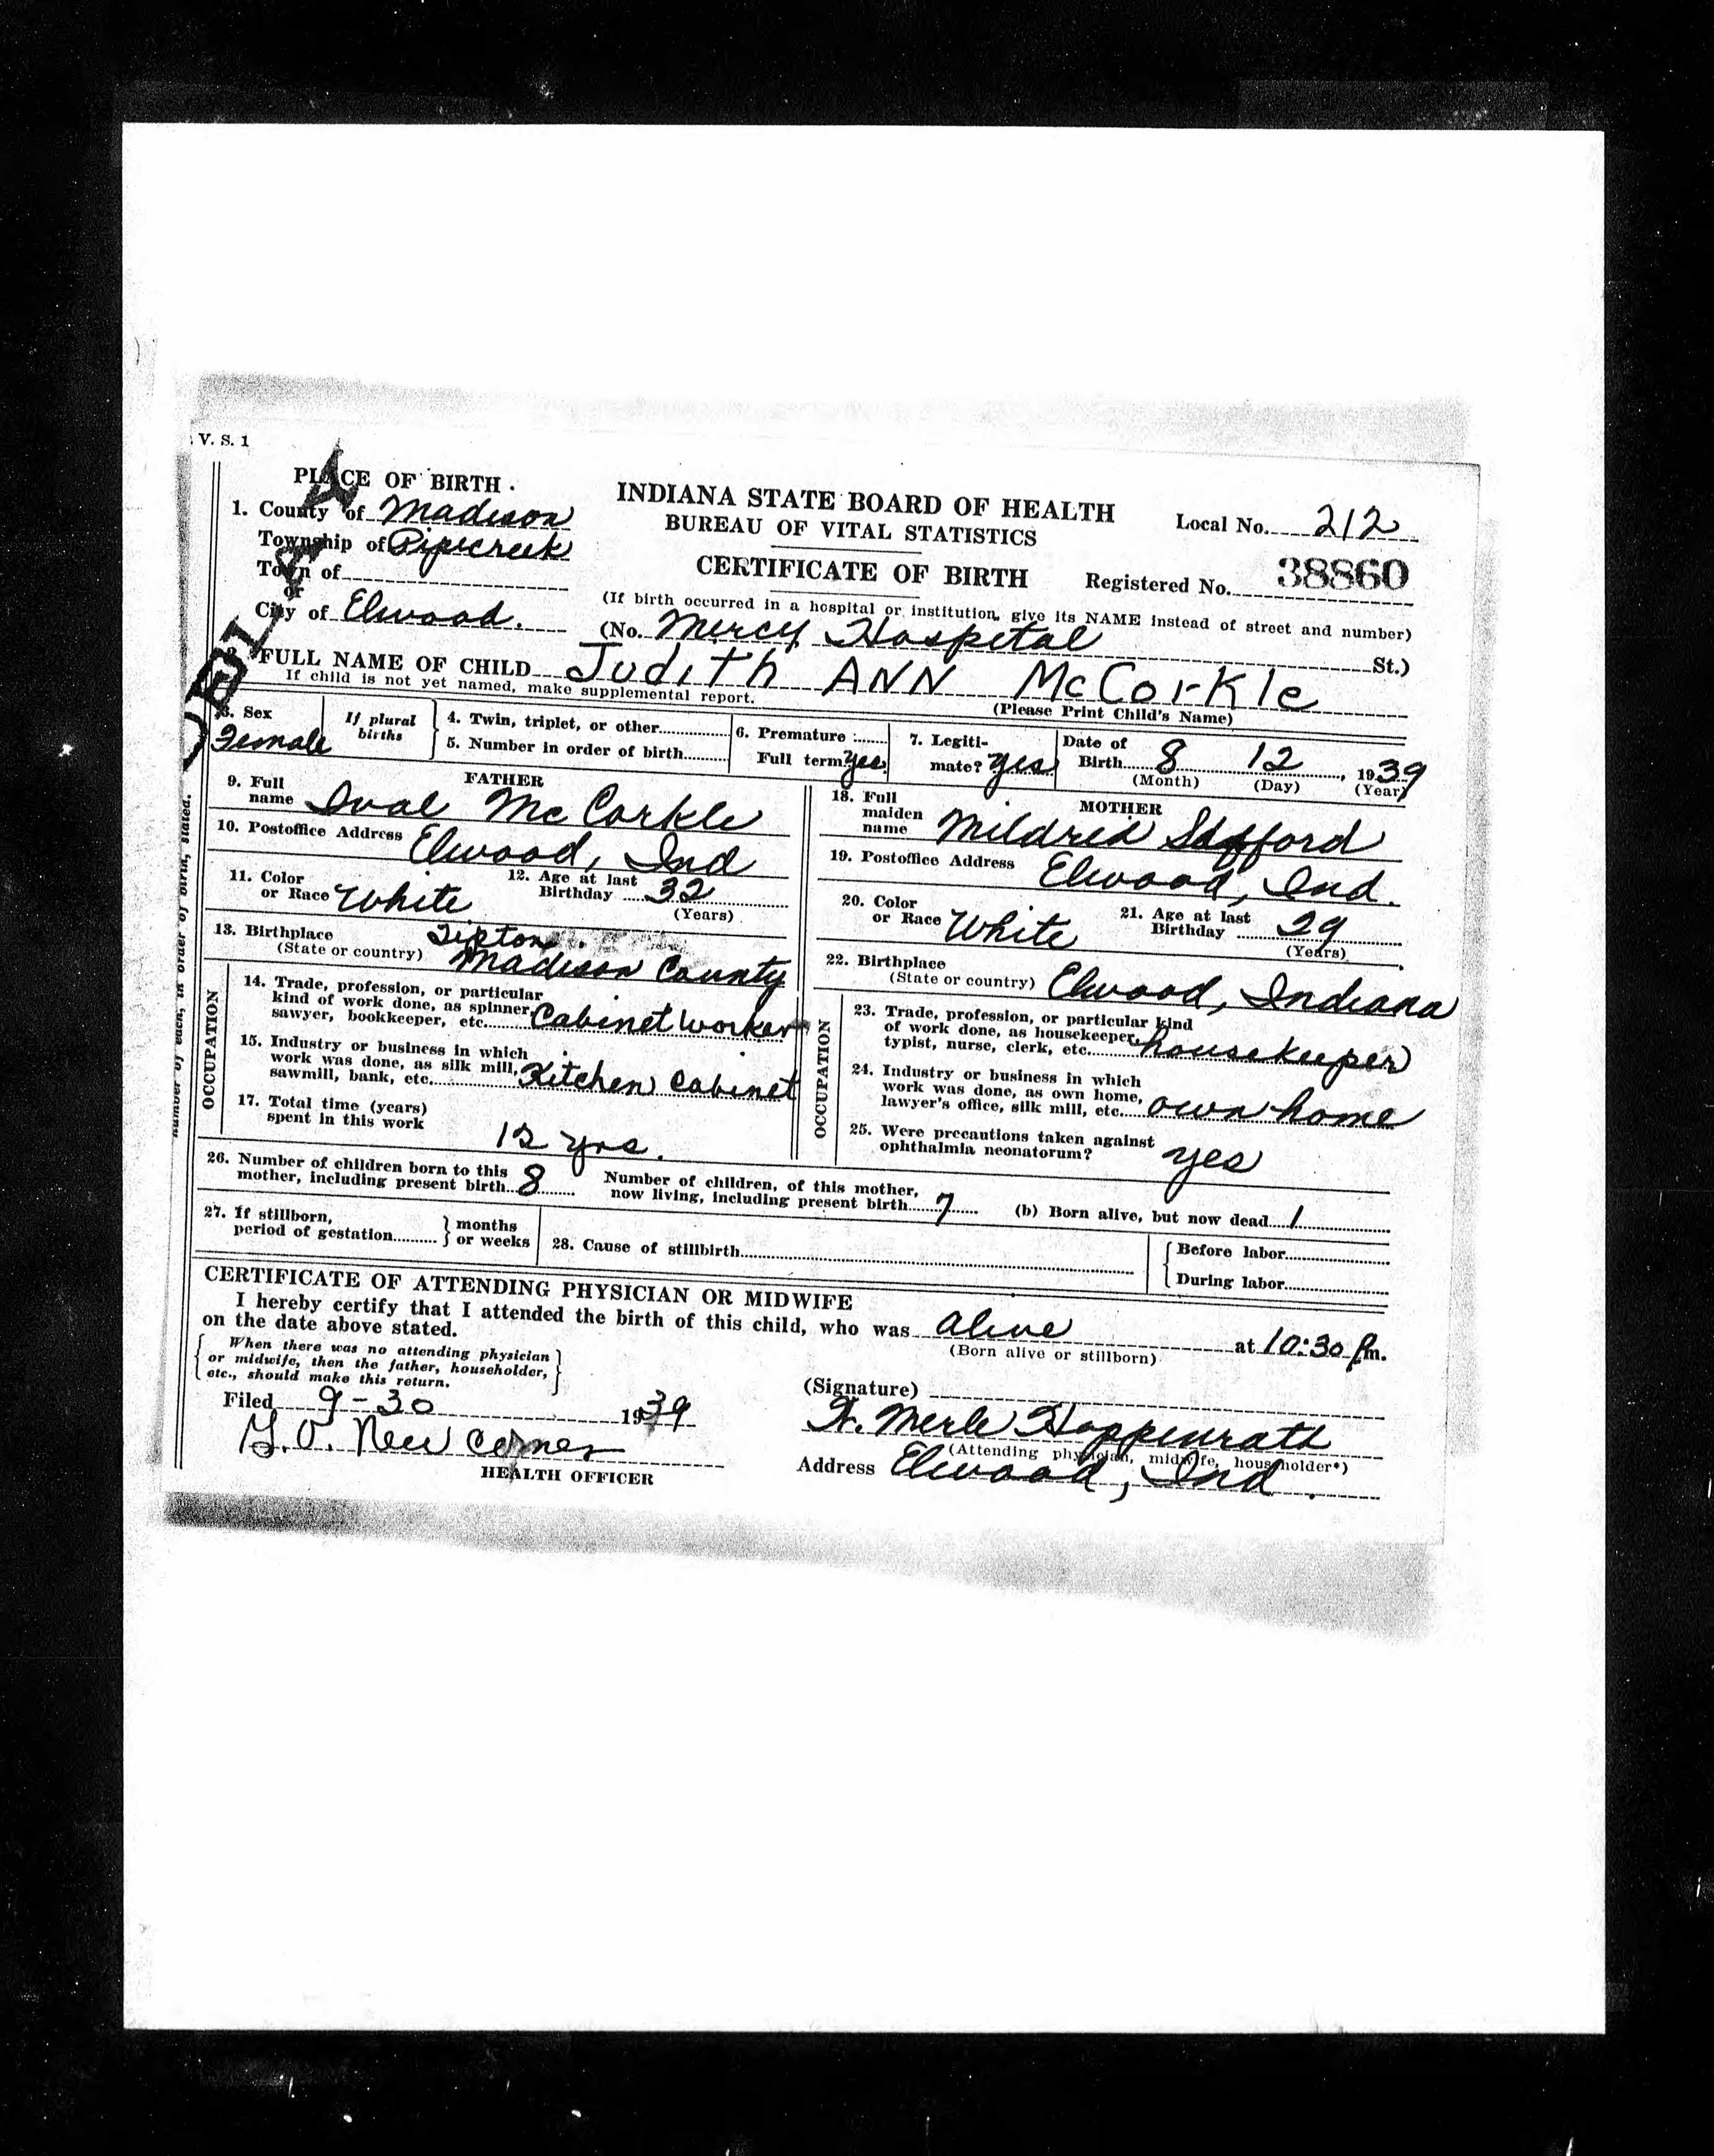 V. S. 1
PLACE OF BIRTH
1. County of Madison
Township of Pipecreek
Town of
or
City of Elwood.
INDIANA STATE BOARD OF HEALTH
BUREAU OF VITAL STATISTICS
CERTIFICATE OF BIRTH
Local No. 212
Registered No. 38860
(If birth occurred in a hospital or institution, give its NAME instead of street and number)
(No. Mercy Hospital St.)
FULL NAME OF CHILD Judith ANN McCorkle
If child is not yet named, make supplemental report.
(Please Print Child's Name)
3. Sex Female
If plural births
4. Twin, triplet, or other
5. Number in order of birth
6. Premature
Full term? Yes
7. Legitimate? Yes
Date of Birth 8 12, 1939
(Month) (Day) (Year)
FATHER
9. Full name Ival McCorkle
10. Postoffice Address Elwood, Ind
11. Color or Race White
12. Age at last Birthday 32
(Years)
13. Birthplace Tipton
(State or country) Madison County
OCCUPATION
14. Trade, profession, or particular
kind of work done, as spinner,
sawyer, bookkeeper, etc. Cabinet worker
15. Industry or business in which
work was done, as silk mill,
sawmill, bank, etc. Kitchen Cabinet
17. Total time (years)
spent in this work 12 yrs.
MOTHER
18. Full maiden name Mildred
19. Postoffice Address Elwood, Ind.
20. Color or Race White
21. Age at last Birthday 29
(Years)
22. Birthplace
(State or country) Elwood, Indiana
OCCUPATION
23. Trade, profession, or particular kind
of work done, as housekeeper,
typist, nurse, clerk, etc. housekeeper
24. Industry or business in which
work was done, as own home,
lawyer's office, silk mill, etc. own home
25. Were precautions taken against
ophthalmia neonatorum? yes
26. Number of children born to this
mother, including present birth 8
Number of children, of this mother,
now living, including present birth 7
(b) Born alive, but now dead 1
27. If stillborn,
period of gestation } months or weeks
28. Cause of stillbirth
Before labor
During labor
CERTIFICATE OF ATTENDING PHYSICIAN OR MIDWIFE
I hereby certify that I attended the birth of this child, who was alive at 10:30 P.m.
on the date above stated.
(Born alive or stillborn)
When there was no attending physician
or midwife, then the father, householder,
etc., should make this return.
Filed 9-30 1939
HEALTH OFFICER
(Signature)
Merle Hoppenrath
(Attending physician, midwife, householder*)
Address Elwood, Ind.
number of each, in order of birth, stated.